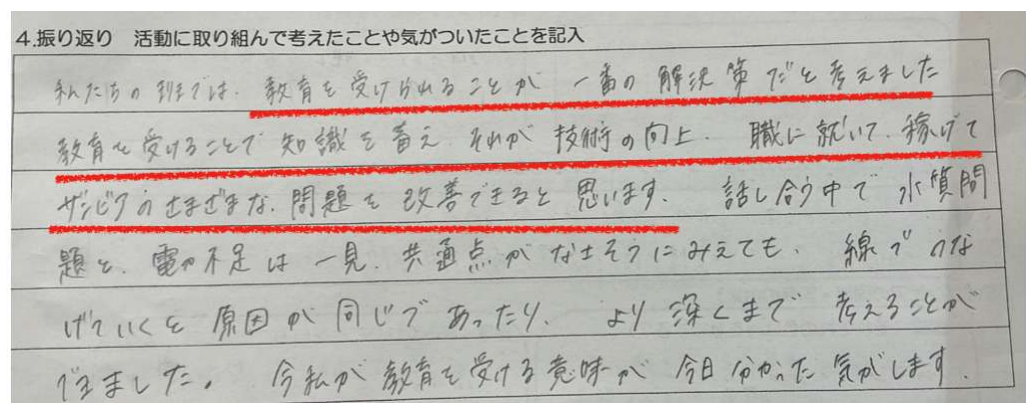 4.振り返り 活動に取り組んで考えたことや気がついたことを記入
私たちの班では、教育を受けられることが 一番の解決策だと考えました
教育を受けることで知識を蓄え それが 技術の向上、職に就いて、稼げて
ザンビアのさまざまな、問題を改善できると思います。 話し合う中で水質問
題と、電力不足は一見、共通点がなさそうにみえても、線でつな
げていくと原因が同じであったり、より深くまで考えることが
できました。 今私が教育を受ける意味が今日分かった気がします。